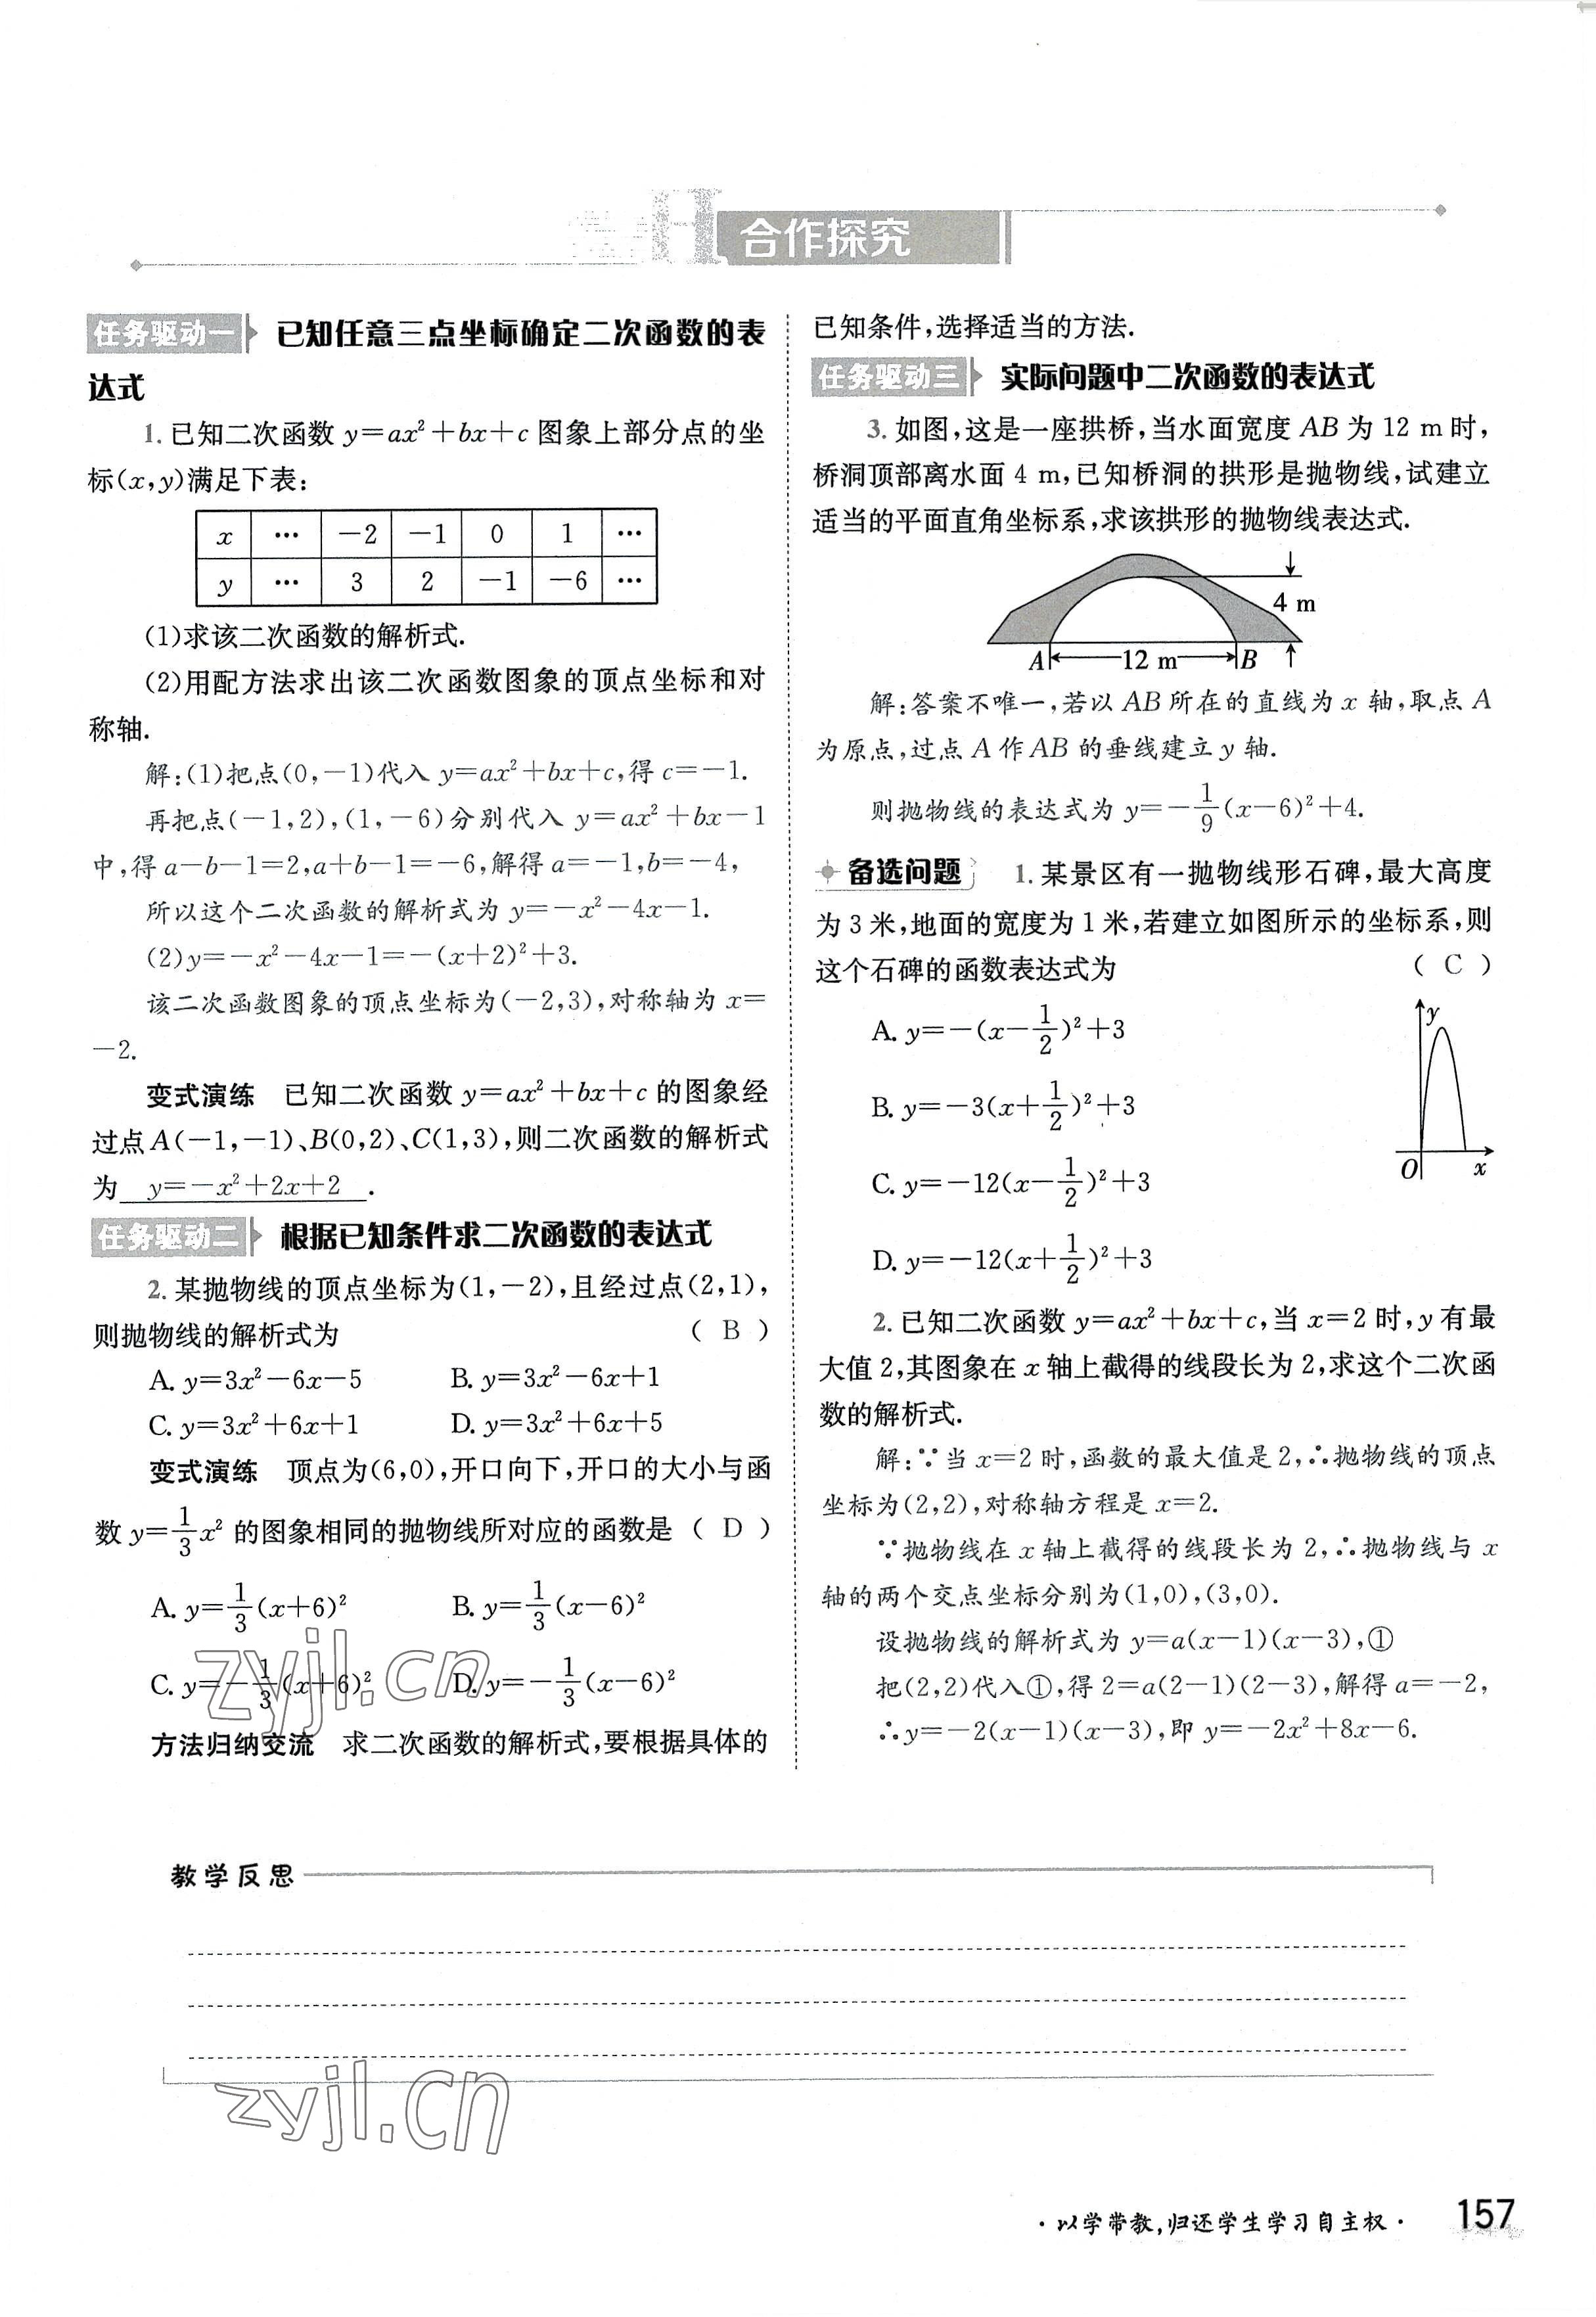 合作探究
任务驱动一 已知任意三点坐标确定二次函数的表
达式
1. 已知二次函数 y=ax²+bx+c 图象上部分点的坐
标(x,y)满足下表:
x … −2 −1 0 1 …
y … 3 2 −1 −6 …
(1)求该二次函数的解析式.
(2)用配方法求出该二次函数图象的顶点坐标和对
称轴.
解:(1)把点(0,−1)代入 y=ax²+bx+c,得 c=−1.
再把点(−1,2),(1,−6)分别代入 y=ax²+bx−1
中,得 a−b−1=2,a+b−1=−6,解得 a=−1,b=−4,
所以这个二次函数的解析式为 y=−x²−4x−1.
(2)y=−x²−4x−1=−(x+2)²+3.
该二次函数图象的顶点坐标为(−2,3),对称轴为 x=
−2.
变式演练 已知二次函数 y=ax²+bx+c 的图象经
过点 A(−1,−1)、B(0,2)、C(1,3),则二次函数的解析式
为 y=−x²+2x+2 .
任务驱动二 根据已知条件求二次函数的表达式
2. 某抛物线的顶点坐标为(1,−2),且经过点(2,1),
则抛物线的解析式为 ( B )
A. y=3x²−6x−5 B. y=3x²−6x+1
C. y=3x²+6x+1 D. y=3x²+6x+5
变式演练 顶点为(6,0),开口向下,开口的大小与函
数 y=1/3x² 的图象相同的抛物线所对应的函数是 ( D )
A. y=1/3(x+6)² B. y=1/3(x−6)²
C. y=−1/3(x+6)² D. y=−1/3(x−6)²
zyjl.cn
方法归纳交流 求二次函数的解析式,要根据具体的
已知条件,选择适当的方法.
任务驱动三 实际问题中二次函数的表达式
3. 如图,这是一座拱桥,当水面宽度 AB 为 12 m 时,
桥洞顶部离水面 4 m,已知桥洞的拱形是抛物线,试建立
适当的平面直角坐标系,求该拱形的抛物线表达式.
4 m
A 12 m B
解:答案不唯一,若以 AB 所在的直线为 x 轴,取点 A
为原点,过点 A 作 AB 的垂线建立 y 轴.
则抛物线的表达式为 y=−1/9(x−6)²+4.
备选问题 1. 某景区有一抛物线形石碑,最大高度
为 3 米,地面的宽度为 1 米,若建立如图所示的坐标系,则
这个石碑的函数表达式为 ( C )
A. y=−(x−1/2)²+3
B. y=−3(x+1/2)²+3
C. y=−12(x−1/2)²+3
D. y=−12(x+1/2)²+3
y
O x
2. 已知二次函数 y=ax²+bx+c,当 x=2 时,y 有最
大值 2,其图象在 x 轴上截得的线段长为 2,求这个二次函
数的解析式.
解:∵当 x=2 时,函数的最大值是 2,∴抛物线的顶点
坐标为(2,2),对称轴方程是 x=2.
∵抛物线在 x 轴上截得的线段长为 2,∴抛物线与 x
轴的两个交点坐标分别为(1,0),(3,0).
设抛物线的解析式为 y=a(x−1)(x−3),①
把(2,2)代入①,得 2=a(2−1)(2−3),解得 a=−2,
∴y=−2(x−1)(x−3),即 y=−2x²+8x−6.
教学反思
zyjl.cn
·以学带教,归还学生学习自主权·
157